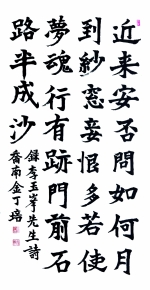 近来安否問如何月
到紗窓妾恨多若使
夢魂行有跡門前石
路半成沙
錄李玉峯先生詩
番南金丁培